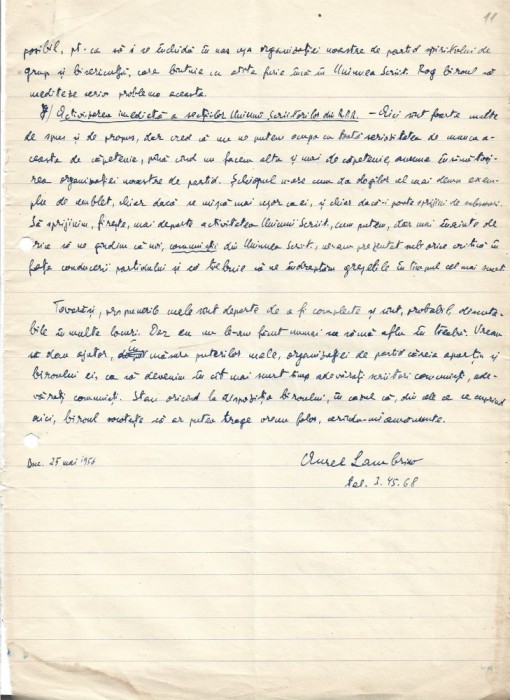 11
posibil, pt. ca să i se închidă în nas ușa organizației noastre de partid spiritului de
grup și bisericuță, care bântuie cu atâta furie încă în Uniunea Scriit. Rog biroul să
mediteze serio problema aceasta.
7/ Activizarea imediată a secțiilor Uniunii Scriitorilor din R.P.R. – Aici sunt foarte multe
de spus și de propus, dar cred că nu ne putem ocupa cu toată seriozitatea de munca a-
ceasta de căpetenie, până când nu facem alta și mai de căpetenie, anume însănătoși-
rea organizației noastre de partid. Șchiopul n-are cum da ologilor cel mai demn exem-
plu de umblet, chiar dacă se mișcă mai ușor ca ei, și chiar dacă-i poate sprijini de subsuori.
Să sprijinim, firește, mai departe activitatea Uniunii Scriit., cum putem, dar mai înainte de
toate să ne gândim că noi, comuniști din Uniunea Scriit., ne-am prezentat sub orice critică în
fața conducerii partidului și că trebuie să ne îndreptăm greșelile în timpul cel mai scurt
Tovarăși, propunerile mele sunt departe de a fi complete și sunt, probabil, discuta-
bile în multe locuri. Dar eu nu le-am făcut numai ca să mă aflu în treabă. Vreau
să dau ajutor, după măsura puterilor mele, organizației de partid căreia aparțin și
biroului ei, ca să devenim în cât mai scurt timp adevărați scriitori comuniști, ade-
vărați comuniști. Stau oricând la dispoziția biroului, în cazul că, din cele ce se cuprind
aici, biroul socotește că ar putea trage vreun folos,
Buc. 25 mai 1956
Aurel Lambrino
tel. 3.45.68